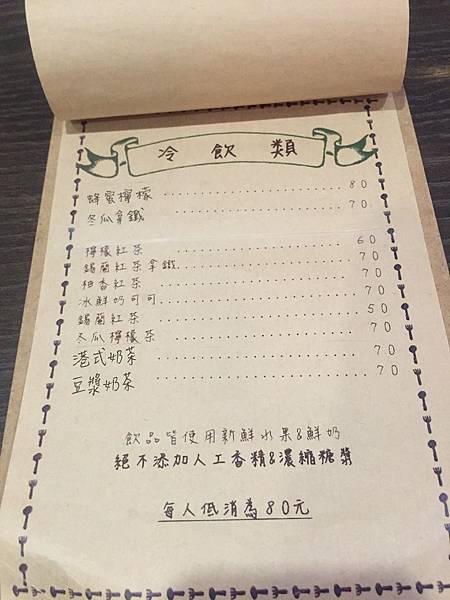 冷飲類
蜂蜜檸檬 ........................ 80
冬瓜拿鐵 ........................ 70
檸檬紅茶 ........................ 60
錫蘭紅茶拿鐵 ........................ 70
柚香紅茶 ........................ 70
冰鮮奶可可 ........................ 70
錫蘭紅茶 ........................ 50
冬瓜檸檬茶 ........................ 70
港式奶茶 ........................ 70
豆漿奶茶 ........................ 70
飲品皆使用新鮮水果&鮮奶
絕不添加人工香精&濃縮糖漿
每人低消為80元